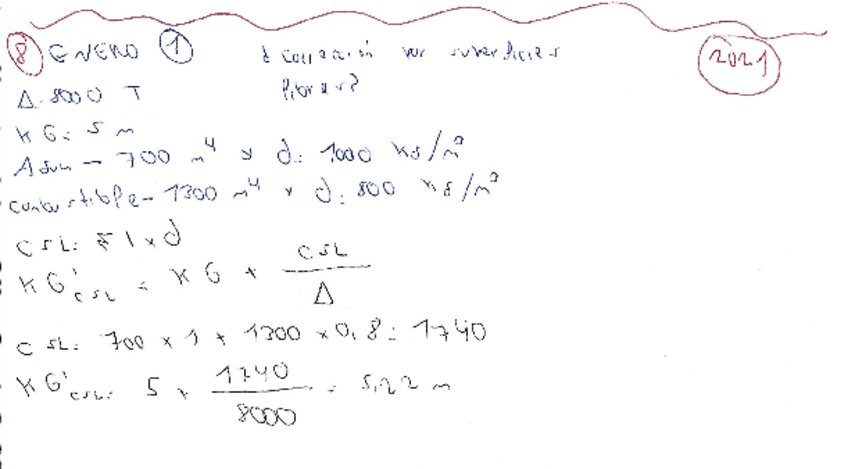 8 ENERO 1 ¿ Corrección por superficies 2021
Δ. 8000 T libres?
KG: 5 m
Agua - 700 m⁴ y d: 1000 kg/m³
combustible - 1300 m⁴ y d: 800 kg/m³
CSL: Σ I x d
KG'csL = KG + CSL / Δ
CSL: 700 x 1 + 1300 x 0,8 = 1740
KG'csL: 5 + 1740 / 8000 = 5,22 m